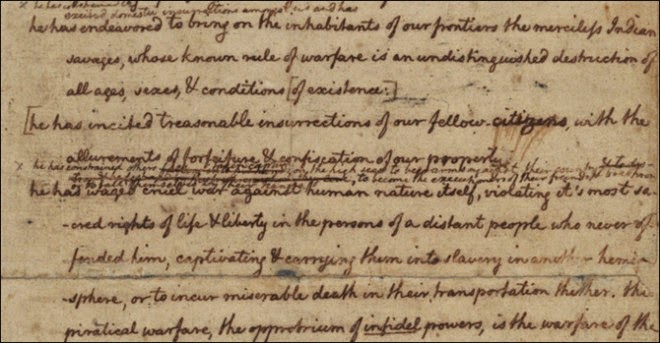 excited domestic insurrections amongst us and has
he has endeavored to bring on the inhabitants of our frontiers the merciless Indian
savages, whose known rule of warfare is an undistinguished destruction of
all ages, sexes, & conditions [of existence:]
[he has incited treasonable insurrections of our fellow-citizens, with the
allurements of forfeiture & confiscation of our property.
he has constrained others
he has waged cruel war against human nature itself, violating it's most sa-
-cred rights of life & liberty in the persons of a distant people who never of-
fended him, captivating & carrying them into slavery in another hemi-
-sphere, or to incur miserable death in their transportation thither. this
piratical warfare, the opprobrium of infidel powers, is the warfare of the